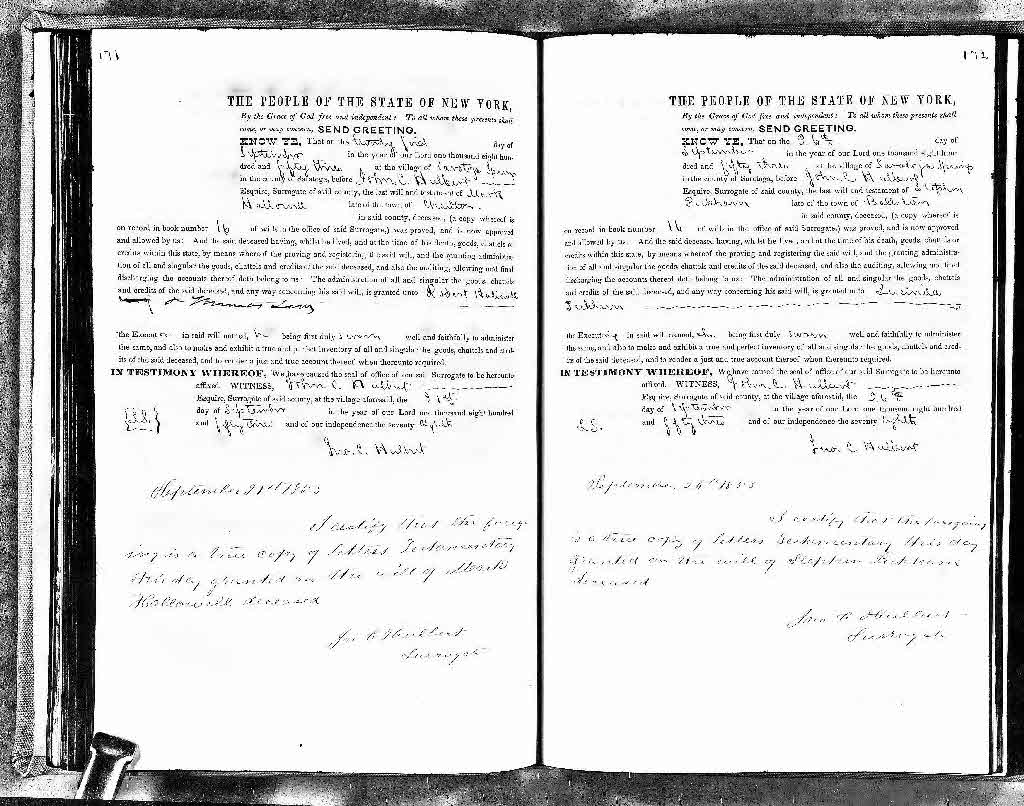 171
THE PEOPLE OF THE STATE OF NEW YORK,
By the Grace of God free and independent: To all whom these presents shall
come, or may concern, SEND GREETING.
KNOW YE, That on the twenty first day of
September in the year of our Lord one thousand eight hun-
dred and fifty three at the village of Saratoga Springs
in the county of Saratoga, before John C. Hulbert
Esquire, Surrogate of said county, the last will and testament of Mark
Hallowell late of the town of Charlton
in said county, deceased, (a copy whereof is
on record in book number 16 of wills in the office of said Surrogate,) was proved, and is now approved
and allowed by us: And the said deceased having, whilst he lived, and at the time of his death, goods, chattels or
credits within this state, by means whereof the proving and registering the said will, and the granting administra-
tion of all and singular the goods, chattels and credits of the said deceased, and also the auditing, allowing and final
discharging the accounts thereof doth belong to us: The administration of all and singular the goods, chattels
and credits of the said deceased, and any way concerning his said will, is granted unto Robert Hallowell
Thomas Low
the Execut in said will named, being first duly sworn well and faithfully to administer
the same, and also to make and exhibit a true and perfect inventory of all and singular the goods, chattels and cred-
its of the said deceased, and to render a just and true account thereof when thereunto required.
IN TESTIMONY WHEREOF, We have caused the seal of office of our said Surrogate to be hereunto
affixed. WITNESS, John C. Hulbert
Esquire, Surrogate of said county, at the village aforesaid, the 21st
day of September in the year of our Lord one thousand eight hundred
{L.S.} and fifty three and of our independence the seventy eighth
Jno. C. Hulbert
September 21st 1853
I certify that the forego
ing is a true copy of letters Testamentary
this day granted on the will of Mark
Hallowell deceased
Jno C Hulbert
Surrogate
172
THE PEOPLE OF THE STATE OF NEW YORK,
By the Grace of God free and independent: To all whom these presents shall
come, or may concern, SEND GREETING.
KNOW YE, That on the 26th day of
September in the year of our Lord one thousand eight hun-
dred and fifty three at the village of Saratoga Springs
in the county of Saratoga, before John C. Hulbert
Esquire, Surrogate of said county, the last will and testament of Stephen
Peckham late of the town of Ballston
in said county, deceased, (a copy whereof is
on record in book number 16 of wills in the office of said Surrogate,) was proved, and is now approved
and allowed by us: And the said deceased having, whilst he lived, and at the time of his death, goods, chattels or
credits within this state, by means whereof the proving and registering the said will, and the granting administra-
tion of all and singular the goods chattels and credits of the said deceased, and also the auditing, allowing and final
discharging the accounts thereof doth belong to us: The administration of all and singular the goods, chattels
and credits of the said deceased, and any way concerning his said will, is granted unto Lucinda
Peckham
the Execut in said will named, she being first duly sworn well and faithfully to administer
the same, and also to make and exhibit a true and perfect inventory of all and singular the goods, chattels and cred-
its of the said deceased, and to render a just and true account thereof when thereunto required.
IN TESTIMONY WHEREOF, We have caused the seal of office of our said Surrogate to be hereunto
affixed. WITNESS, John C. Hulbert
Esquire, Surrogate of said county, at the village aforesaid, the 26th
day of September in the year of our Lord one thousand eight hundred
L.S. and fifty three and of our independence the seventy eighth
Jno. C. Hulbert
September 26th 1853
I certify that the foregoing
is a true copy of letters Testamentary this day
granted on the will of Stephen Peckham
deceased
Jno C Hulbert
Surrogate